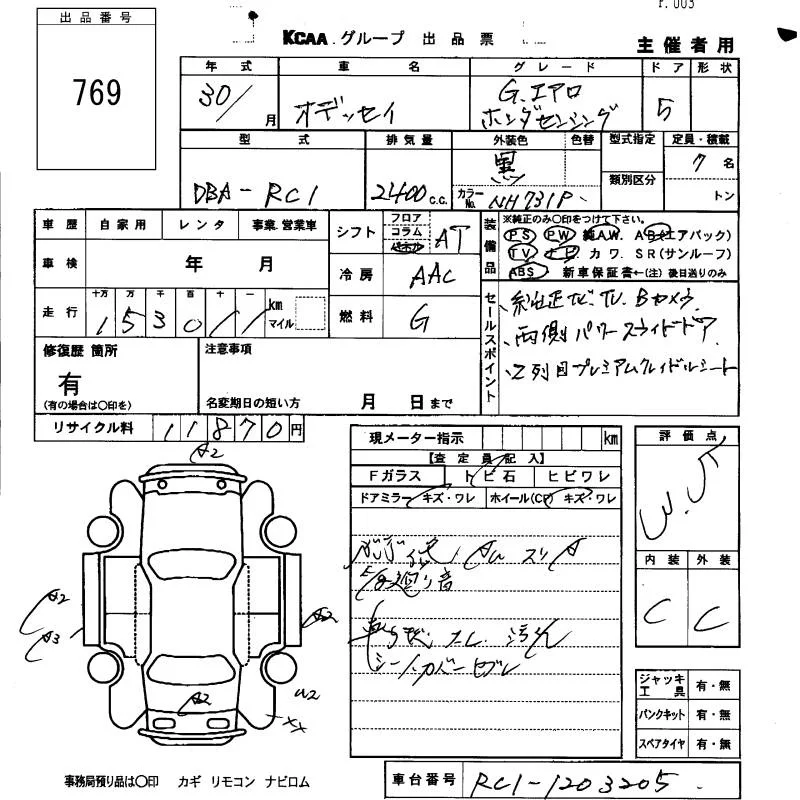 出品番号
769
KCAA グループ 出品票
主催者用
年式 車名 グレード ドア 形状
30/ 月 オデッセイ G.エアロ ホンダセンシング 5
型式 排気量 外装色 色替 型式指定 定員・積載
DBA-RC1 2400 c.c. 黒 カラーNo. NH731P 類別区分 7 名 トン
車歴 自家用 レンタ 事業.営業車
シフト フロア コラム AT
装備品 ※純正のみ〇印をつけて下さい。
PS PW 純A.W. AB(エアバック)
TV ナビ カワ SR(サンルーフ)
ABS 新車保証書←(注) 後日送りのみ
車検 年 月
冷房 AAC
走行 十万 万 千 百 十 一 km マイル
燃料 G
セールスポイント
純正ナビ.TV.Bカメラ
両側パワースライドドア
2列目プレミアムクレイドルシート
修復歴 箇所
有
(有の場合は〇印を)
注意事項
名変期日の短い方 月 日まで
リサイクル料 11870 円
現メーター指示 km
【査定員記入】
Fガラス トビ石 ヒビワレ
ドアミラー キズ・ワレ ホイール(CP) キズ・ワレ
下廻り音
汚れ
シートカバー
評価点
3.5
内装 外装
C C
ジャッキ工具 有・無
パンクキット 有・無
スペアタイヤ 有・無
A2
A2
A3
A2
A2
U2
XX
事務局預り品は〇印 カギ リモコン ナビロム
車台番号 RC1-1203205